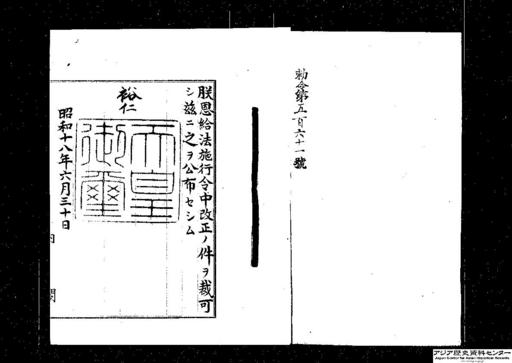 勅令第五百六十一號
朕恩給法施行令中改正ノ件ヲ裁可
シ茲ニ之ヲ公布セシム
裕仁
天皇御璽
昭和十八年六月三十日
内閣
アジア歴史資料センター
Japan Center for Asian Historical Records